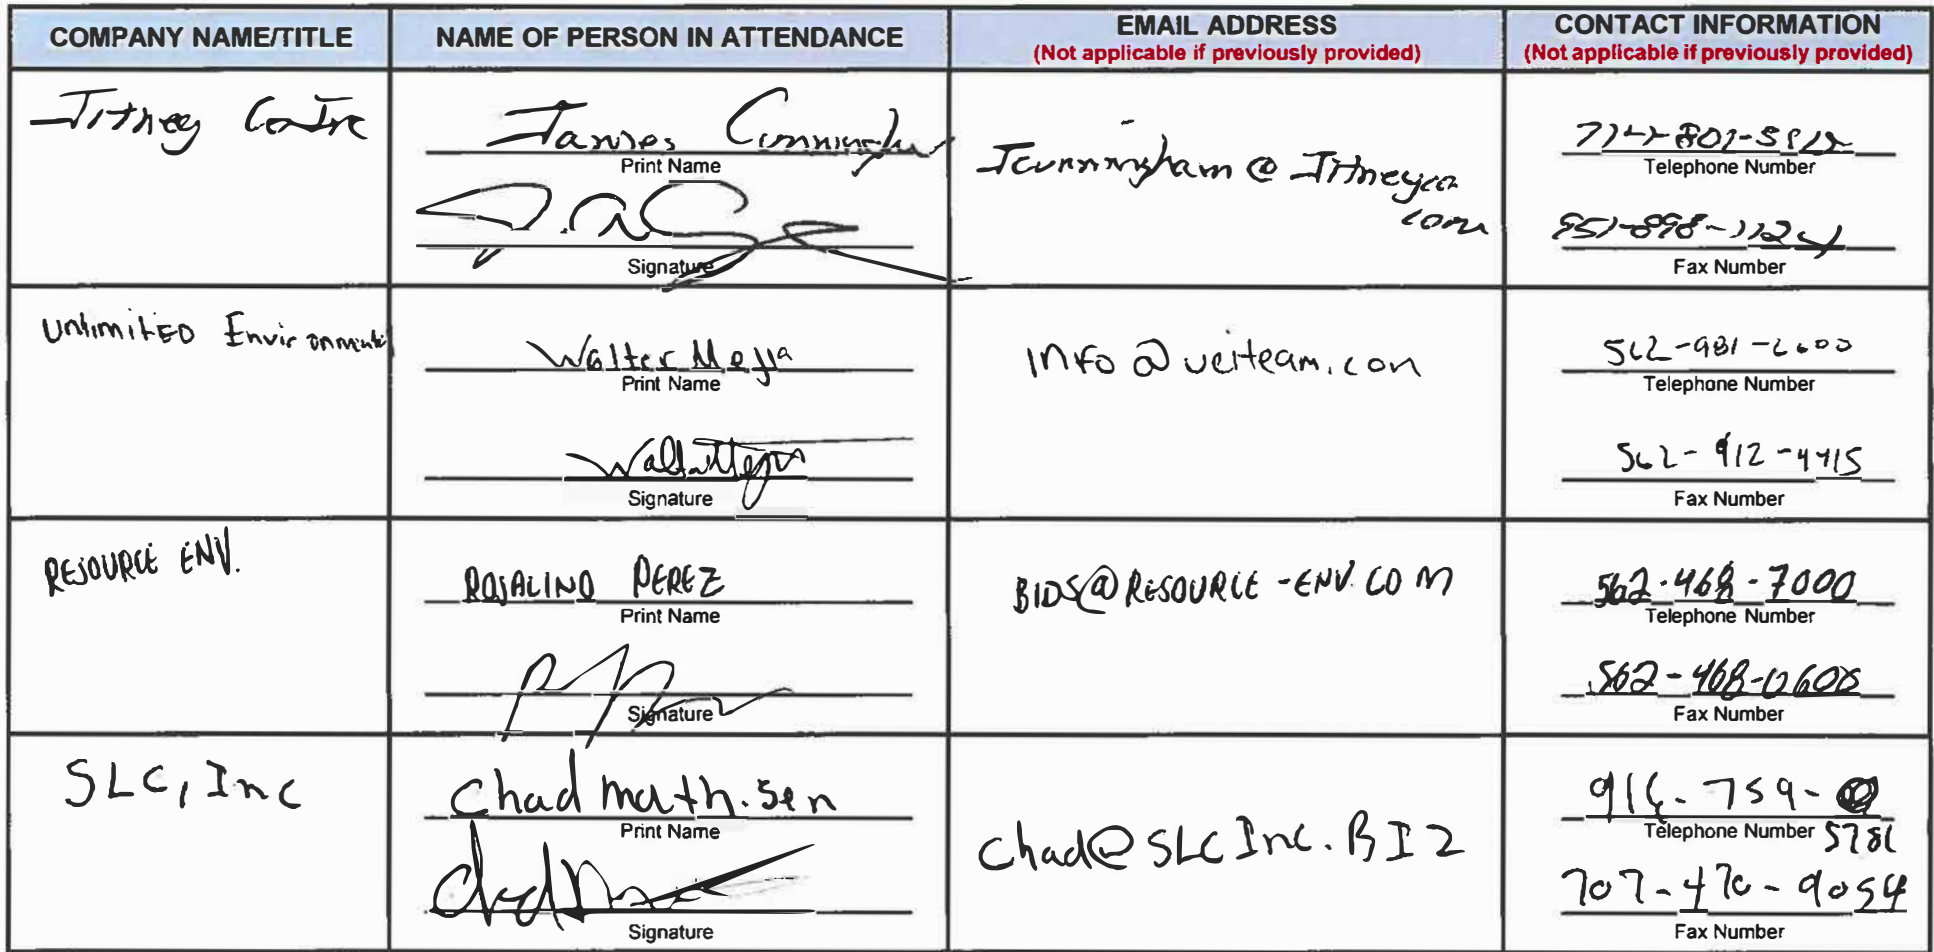 COMPANY NAME/TITLE
NAME OF PERSON IN ATTENDANCE
EMAIL ADDRESS
(Not applicable if previously provided)
CONTACT INFORMATION
(Not applicable if previously provided)
Jitney
James
Print Name
Signature
Jcunningham@Jitneyco
com
Telephone Number
951-898-1124
Fax Number
Unlimited Environmental
Walter Mejia
Print Name
Signature
info@ueiteam.com
562-981-6600
Telephone Number
562-912-4415
Fax Number
RESOURCE ENV.
ROSALINO PEREZ
Print Name
Signature
BIDS@RESOURCE-ENV.COM
562-468-7000
Telephone Number
562-468-0600
Fax Number
SLC, Inc
Chad mathisen
Print Name
Signature
chad@SLCInc.BIZ
916-759-
Telephone Number 5781
707-470-9054
Fax Number